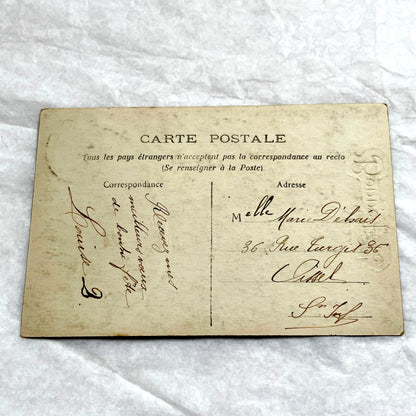 CARTE POSTALE
Tous les pays étrangers n'acceptent pas la correspondance au recto
(Se renseigner à la Poste)
Correspondance
Recevez mes
meilleurs vœux
de bonne fête
Louise B
Adresse
Melle Marie Debais
36 Rue Turgot 36